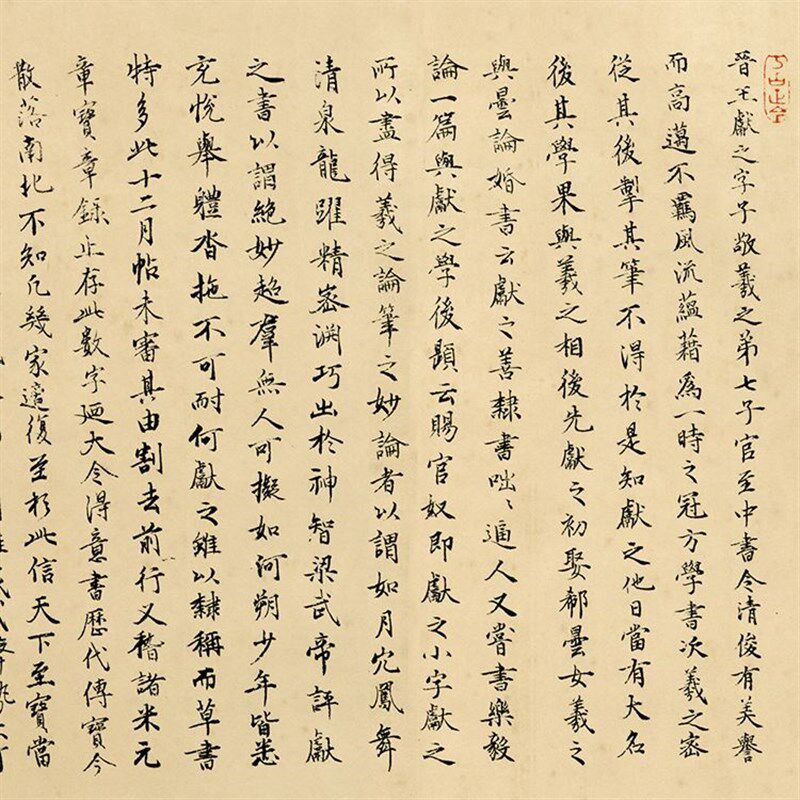 晉王獻之字子敬羲之第七子官至中書令清俊有美譽
而高邁不羈風流蘊藉為一時之冠方學書次羲之密
從其後掣其筆不得於是知獻之他日當有大名
後其學果與羲之相後先獻之初娶郗曇女羲之
與曇論婚書云獻之善隸書咄咄逼人又嘗書樂毅
論一篇與獻之學後題云賜官奴即獻之小字獻之
所以盡得羲之論筆之妙論者以謂如月穴鳳舞
清泉龍躍精密淵巧出於神智梁武帝評獻
之書以謂絕妙超群無人可擬如河朔少年皆悉
充悅舉軆沓拖不可耐何獻之雖以隸稱而草書
特多此十二月帖未審其由割去前行又稽諸米元
章寶章錄止存此數字廼大令得意書歷代傳寶今
散落南北不知凡幾家適復至於此信天下至寶當